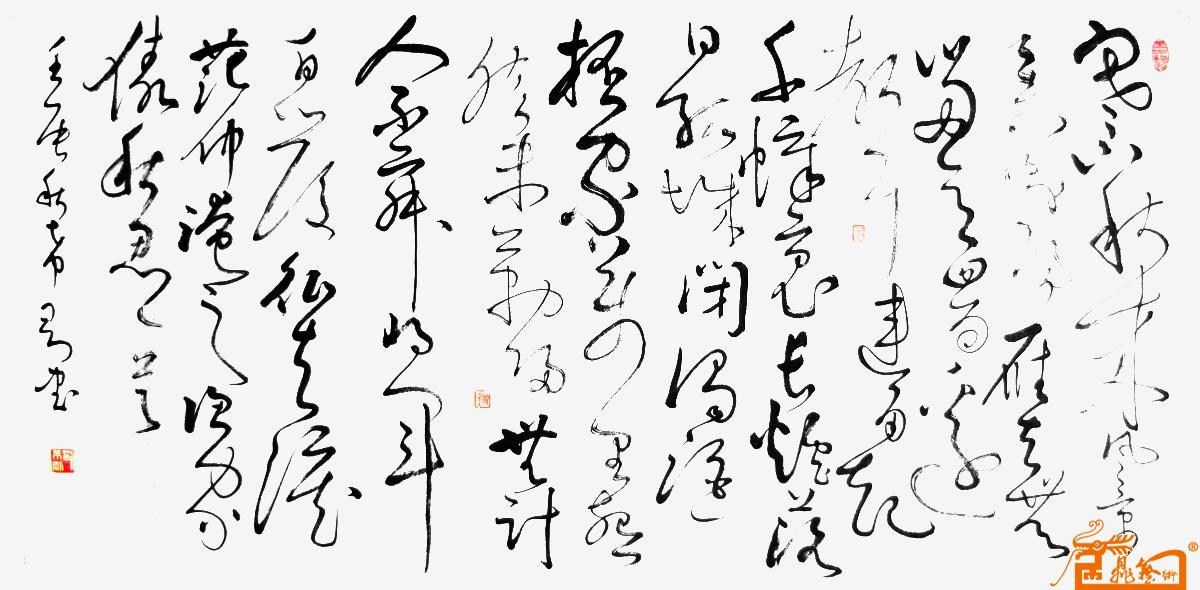 塞下秋来风景
异衡阳雁去无
留意四面边
声连角起
千嶂里长烟落
日孤城闭浊酒一
杯家万里燕
然未勒归无计
人不寐将军
白发征夫泪
范仲淹之渔家
傲秋思
壬辰秋 书